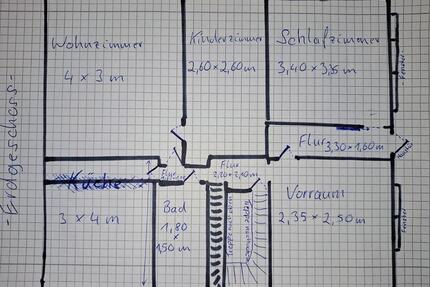 - Erdgeschoss -
Wohnzimmer
4 x 3 m
Kinderzimmer
2,60 x 2,60 m
Schlafzimmer
3,40 x 3,35 m
Fenster
Flur
3,30 x 1,60 m
Flur
Küche
3 x 4 m
Bad
1,80
x
1,50 m
Treppe nach oben
Vorraum
2,35 x 2,50 m
Fenster